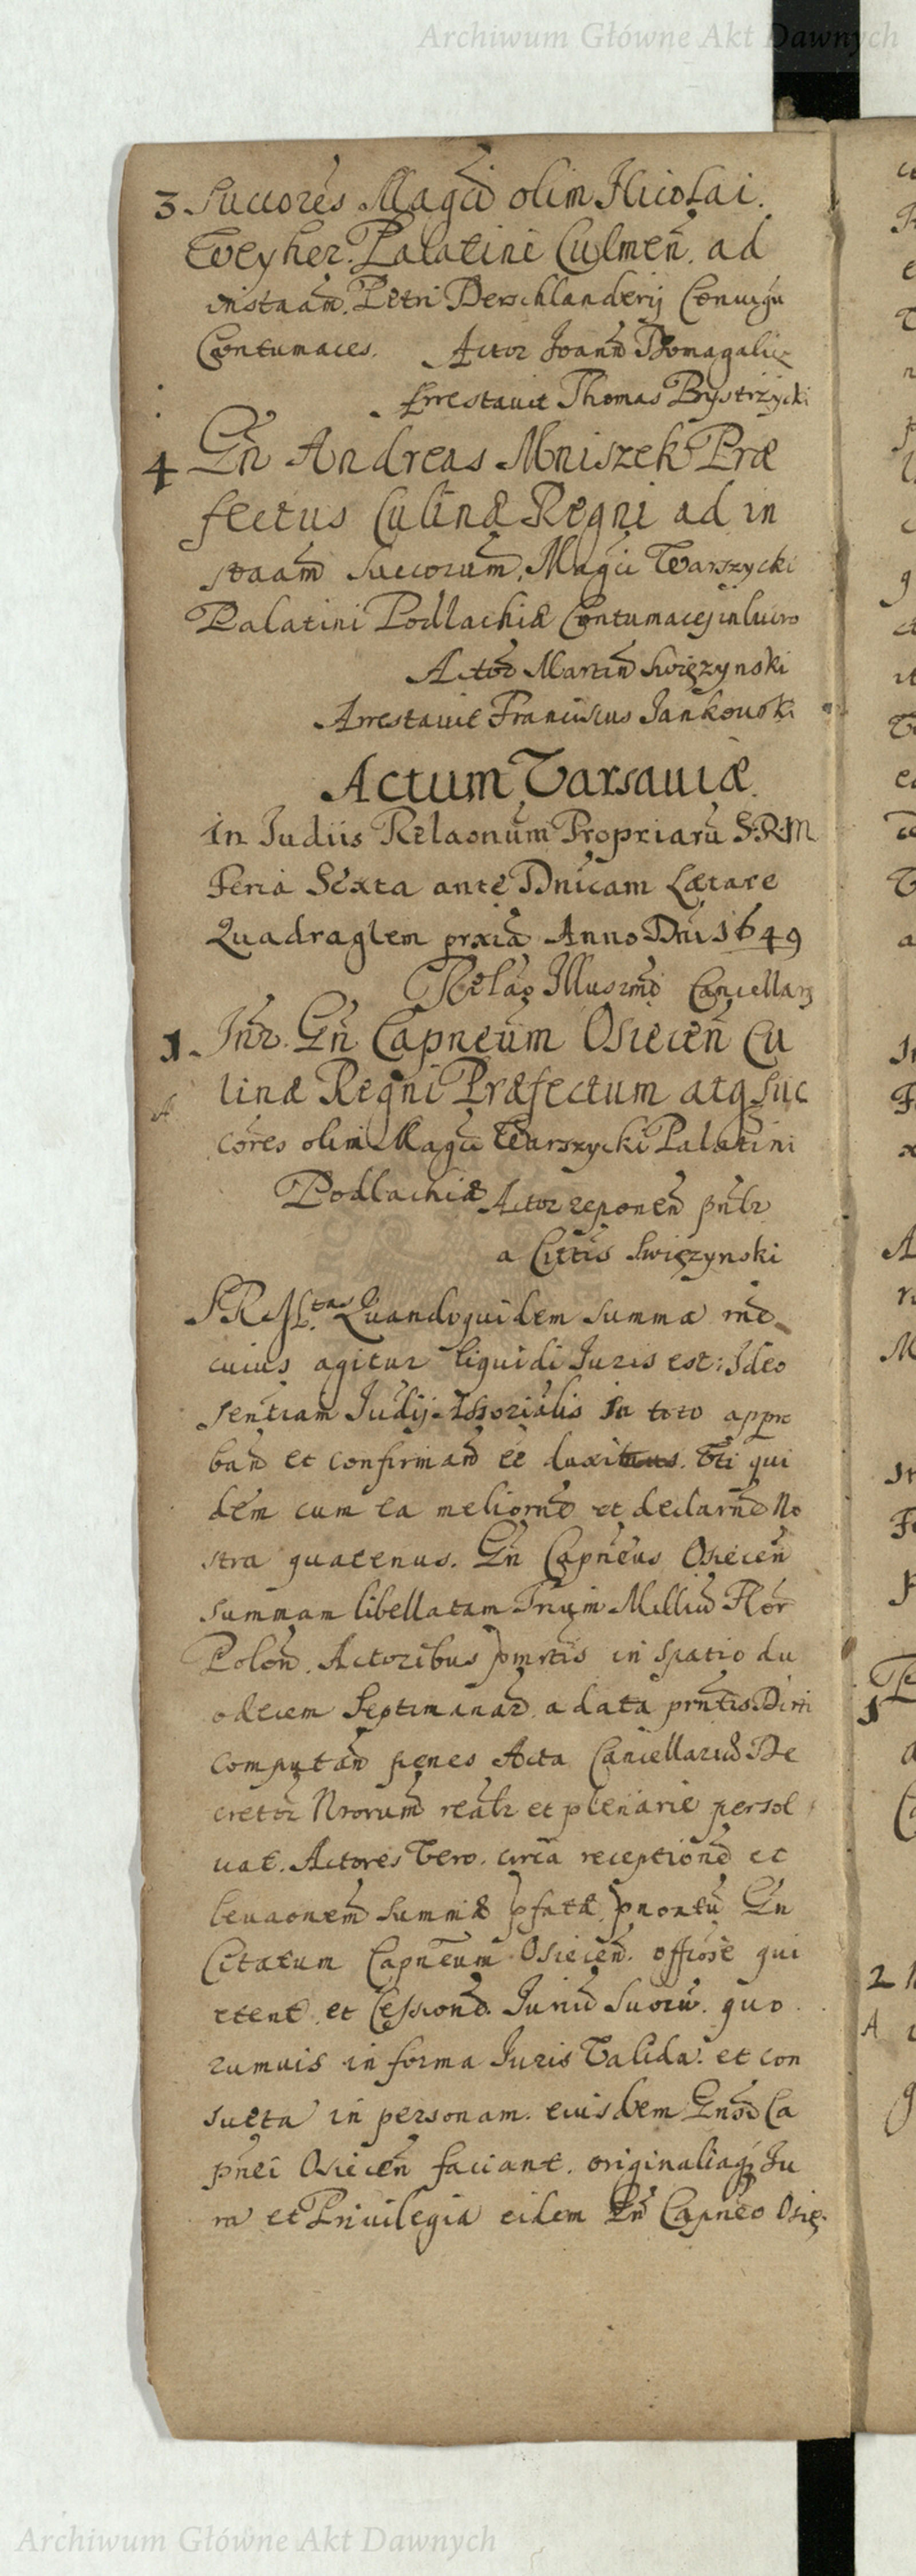 Archiwum Główne Akt Dawnych
3 Succores Magci olim Nicolai.
Weyher. Palatini Culmen. ad
instaam. Petri Derschlanderij Convigu
Contumaces. Actor Joann Domagalic
Arrestavit Thomas Bystrzycki
4 Gn Andreas Mniszek Præ
fectus Culinæ Regni ad in
staam Succorum. Magci Warszycki
Palatini Podlachiæ Contumaces in lucro
Actor Martin Swięzynski
Arrestavit Franciscus Jankowski
Actum Varsaviæ.
In Judiis Relaonum Propriarũ S.R.M
Feria Sexta ante Dnicam Lætare
Quadraglem prxia Anno Dni 1649
Relao Illusmi Cancellary
1. Intr. Gn Capneum Osiecen Cu
linæ Regni Præfectum atq Suc
A cores olim Magci Warszycki Palatini
Podlachiæ Actor reponen pntr
a Citis Swięzynski
S R Mtas Quandoquidem summa me
cuius agitur liquidi Juris est: Ideo
sentiam Judij Assorialis in toto appro
ban et confirman ee duxit. Vti qui
dem cum ea meliorne et declarne No
stra quatenus. Gn Capneus Osiecen
summam libellatam Trium Milliu Flor
Polon. Actoribus pmrtis in spatio du
odecem Septimanar. a data prntis Dtti
computan penes Acta Cancellariæ De
cretor Nrorum realr et plenarie persol
uat. Actores Vero. circa receptione et
levaonem summæ pfatæ Gn
Citatum Capneum Osiecen. offiose qui
etent. et Cessione. Juriu Suoru. quo
rumuis in forma Juris Valida. et con
sueta in personam. eiusdem Gnsi Ca
pnei Osiecen faciant. originaliaq Ju
ra et Privilegia eidem Gn Capneo Osie
Archiwum Główne Akt Dawnych